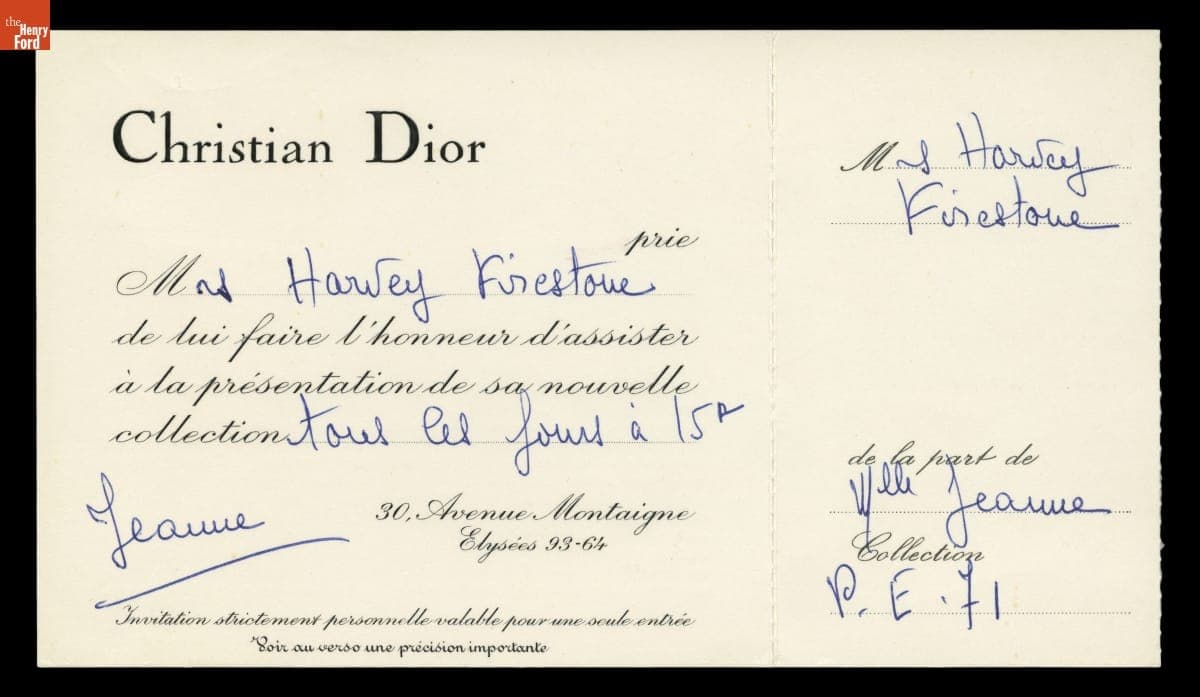 the
Henry
Ford
Christian Dior
prie
Mrs Harvey Firestone
de lui faire l'honneur d'assister
à la présentation de sa nouvelle
collection tous les jours à 15h
Jeanne
30, Avenue Montaigne
Elysées 93-64
Invitation strictement personnelle valable pour une seule entrée
Voir au verso une précision importante
Mrs Harvey
Firestone
de la part de
Mlle Jeanne
Collection
P. E. 71